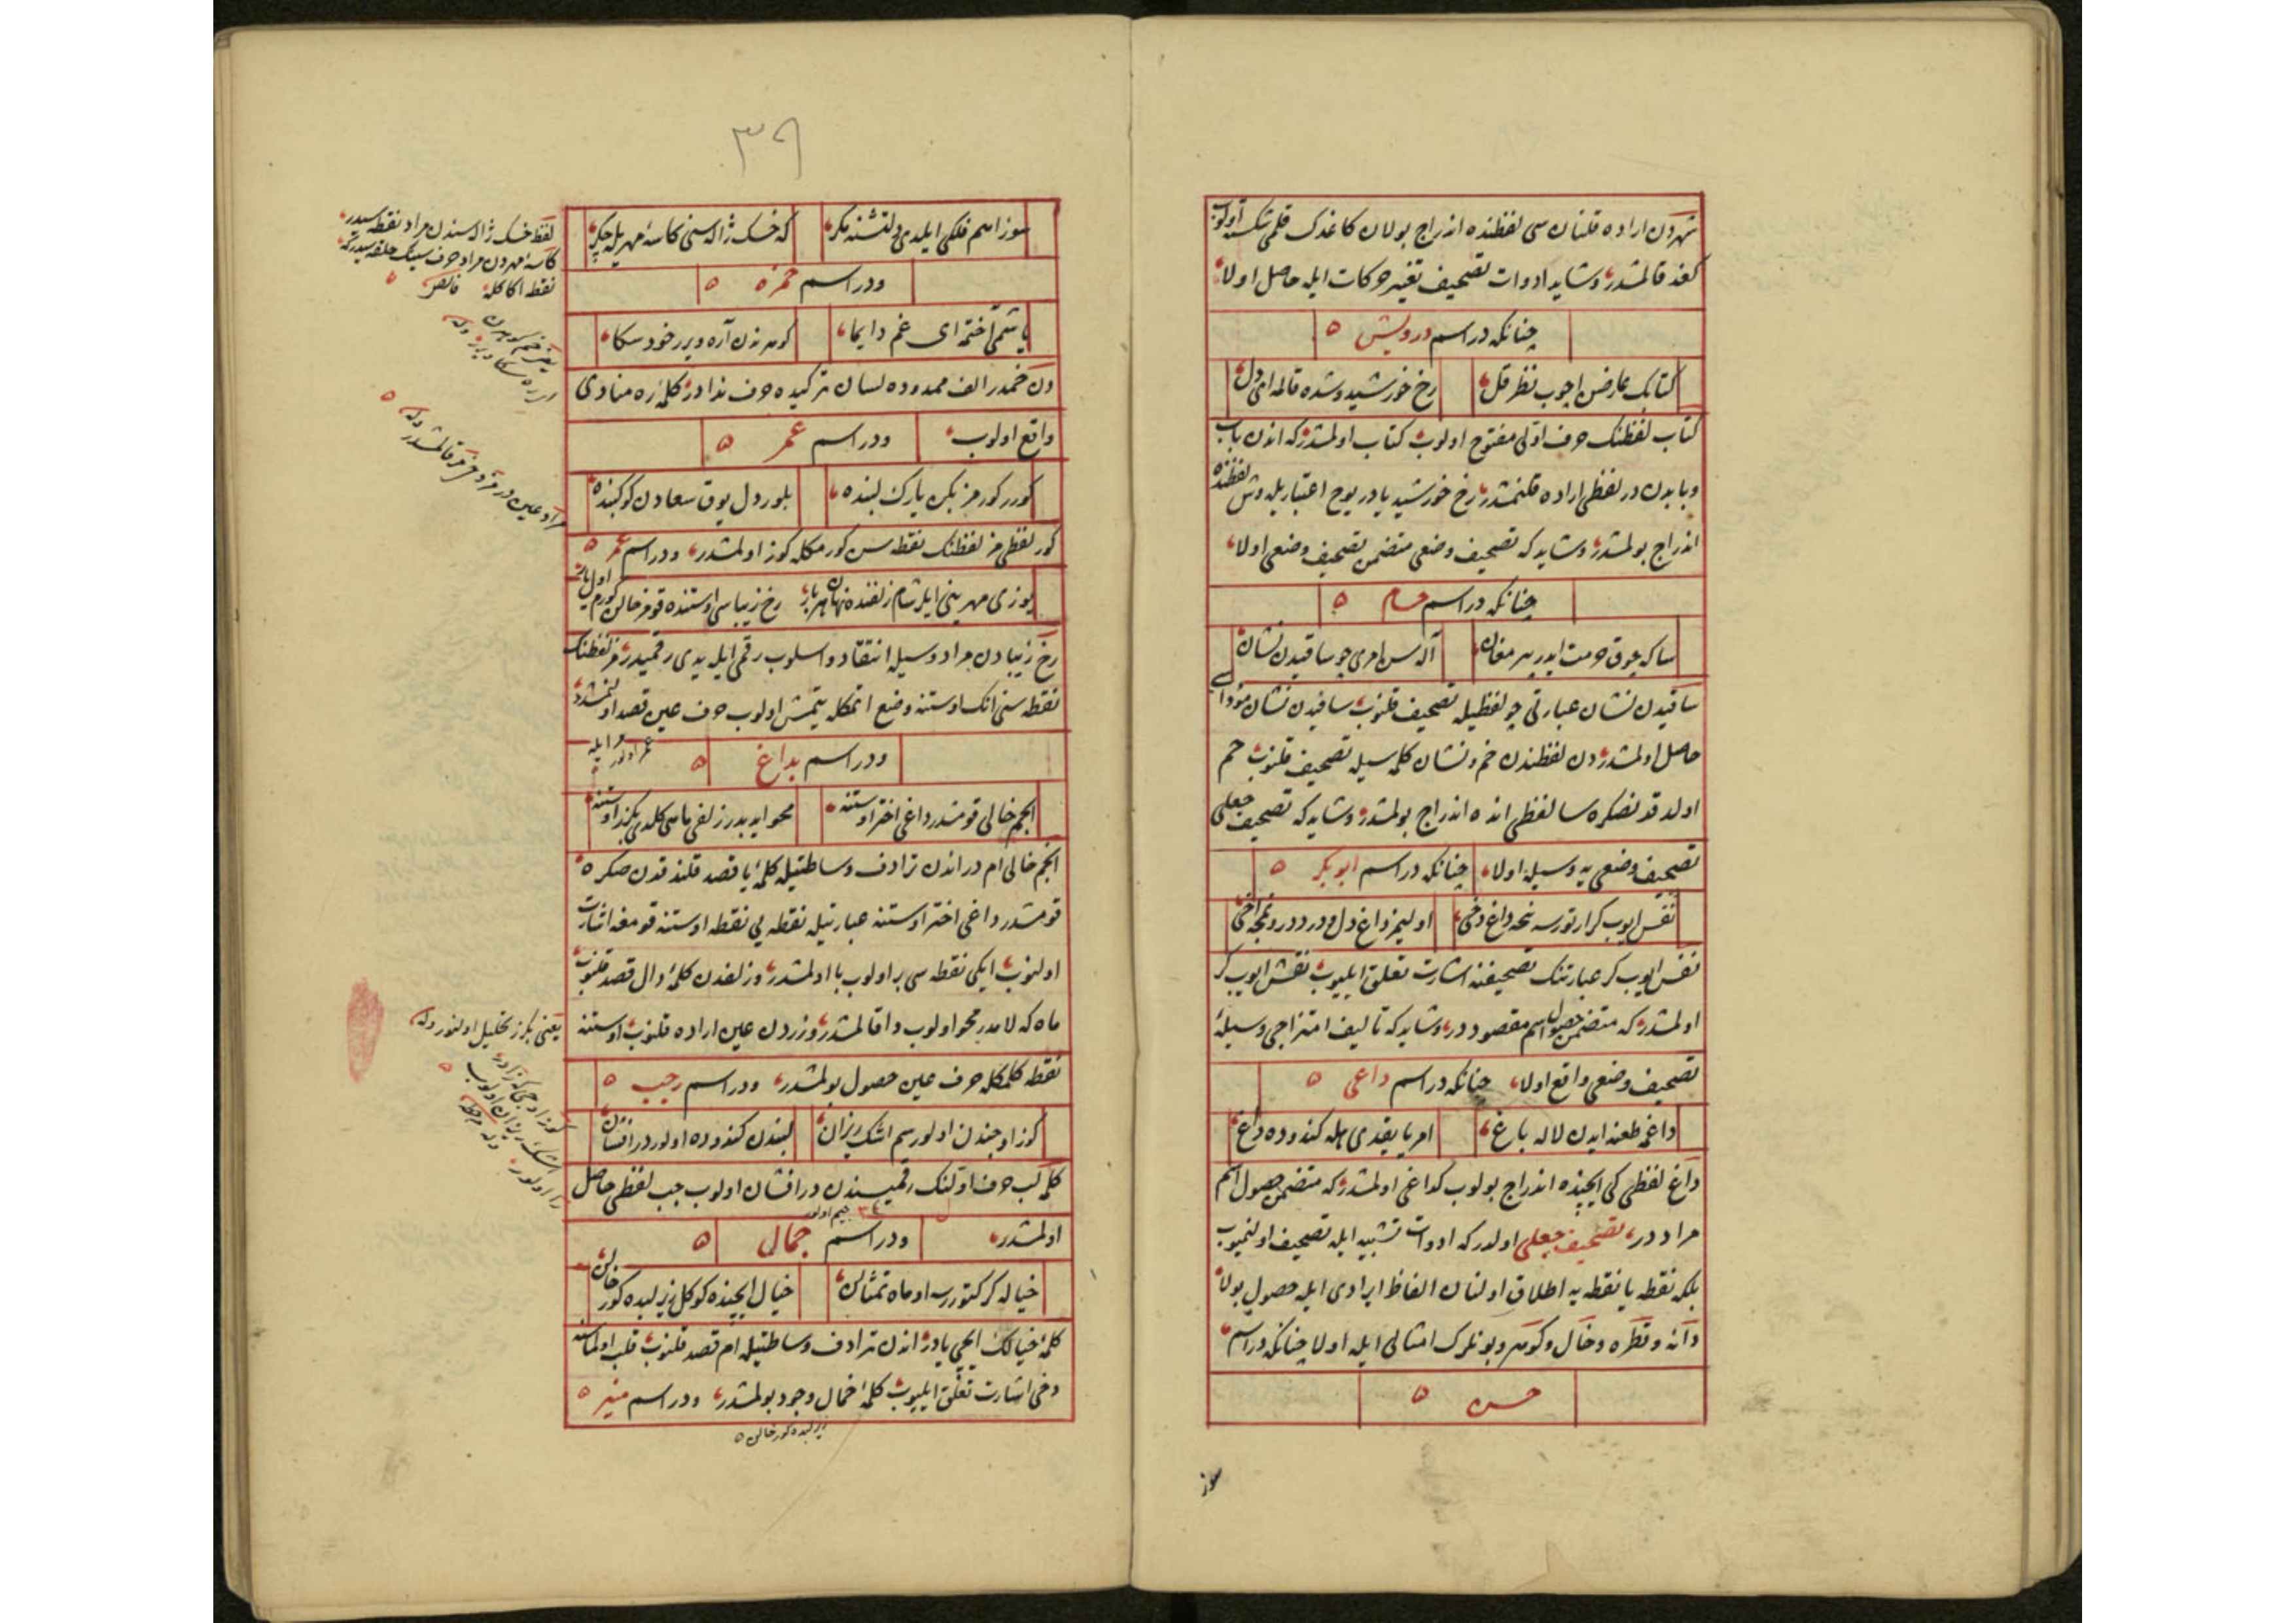 شهردن اراده قلنان سی لفظنده اندراج بولان کاغدک قلمی شکسته اولوب
کغد قالمشدر وشاید ادوات تصحیف تغیر حرکات ایله حاصل اولا
چنانکه در اسم درویش
کتابک عارضن اچوب نظر قل
رخ خورشید وشده قاله ای دل
کتاب لفظنک حرف اولی مفتوح اولوب کتاب اولمشدر که اندن باب
وبابدن در لفظی اراده قلنمشدر رخ خورشید یادر یوح اعتباریله وش لفظنده
اندراج بولمشدر وشاید که تصحیف وضعی متضمن تصحیف وضعی اولا
چنانکه در اسم حسام
ساکه چوق حرمت ایدر پیر مغان
آله سن امری چو ساقیدن نشان
ساقیدن نشان عبارتی چو لفظیله تصحیف قلنوب ساقیدن نشان مؤدای
حاصل اولمشدر دن لفظندن خم ونشان کلمه سیله تصحیف قلنوب حم
اولدقدنصکره سا لفظی انده اندراج بولمشدر وشاید که تصحیف جعلی
تصحیف وضعی یه وسیله اولا
چنانکه در اسم ابوبکر
نفس ایوب کرارتورسه نحه داغ دخی
اولیمز داغ دل ودرد درونمجه اخی
نفس ایوب کر عبارتنک تصحیفنه اشارت تعلق ایلیوب نقش ایوب کر
اولمشدر که متضمن حصول اسم مقصوددر وشاید که تألیف امتزاجی وسیلۀ
تصحیف وضعی واقع اولا
چنانکه در اسم داعی
داغمه طعنه ایدن لاله باغ
امر یا یقدی ایله کندوده داغ
داغ لفظی کی ایچنده اندراج بولوب کداغی اولمشدر که متضمن حصول اسم
مراددر تصحیف جعلی اولدر که ادوات تشبیه ایله تصحیف اولنمیوب
بلکه نقطه یا نقطه یه اطلاق اولنان الفاظ ایرادی ایله حصول بولا
دانه وقطره وخال وکوهر وبونلرک امثالی ایله اولا چنانکه در اسم
حسن
سوز
۳۹
سوز اسم فلکی ایلدی دلتشنه مکر
که خسک ژاله سنی کاسۀ مهریله چکر
ودر اسم حمزه
یاشمی آختمه ای غم دایما
کوهرندن آره ویرر خود سکا
دن خمدر الف ممدوده لسان ترکیده حرف ندادر کلمۀ ره منادی
واقع اولوب
ودر اسم عمر
کورر کورمز بکن یارک لبنده
بلور دل یوق سعادن کوکبنده
کور لفظی مز لفظنک نقطه سن کورمکله کوز اولمشدر ودر اسم عمر
یوزی مهرینی ایلر شام زلفنده نهان هر بار
رخ زیباسی اوستنده قومز خالن کورمز اول یار
رخ زیبادن مراد وسیله انتقاد واسلوب رقمی ایله یدی رقمیدر مز لفظنک
نقطه سنی انک اوستنه وضع اتمکله یتمش اولوب حرف عین قصد اولنمشدر
ودر اسم بداغ
انجم خالی قومشدر داغی اختر اوستنه
محو ایدیدر زلفی ماسی کلدی بکزر اوستنه
انجم خالی ام در اندن ترادف وساطتیله کلمۀ یا قصد قلندقدن صکره
قومشدر داغی اختر اوستنه عبارتیله نقطه یی نقطه اوستنه قومغه اشارت
اولنوب ایکی نقطه سی بر اولوب با اولمشدر وزلفدن کلمۀ دال قصد قلنوب
ماه که لامدر محو اولوب دا قالمشدر وزردن عین اراده قلنوب اوستنه
نقطه کلمکله حرف غین حصول بولمشدر ودر اسم رجب
کوز اوجندن اولورسم اشک ریزان
لبندن کندوده اولور در افشان
کلمۀ لب حرف اولنک رقمیسندن در افشان اولوب جب لفظی حاصل
جیم اولور
اولمشدر
ودر اسم جمال
خیاله کر کتوررسه او ماه تمثالن
خیال ایچنده کوکل زیر لبده کور خالن
کلمۀ خیالک ایچی یادر اندن ترادف وساطتیله ام قصد قلنوب قلب اولماسنه
دخی اشارت تعلق ایلیوب کلمۀ خمال وجود بولمشدر ودر اسم منیر
زیر لبده کور خالن
لفظ خسک ژاله سندن مراد نقطه سیدر
کاسۀ مهردن مراد حرف سینک حلقه سیدر که
یعنی بکزر تحلیل اولنور دله